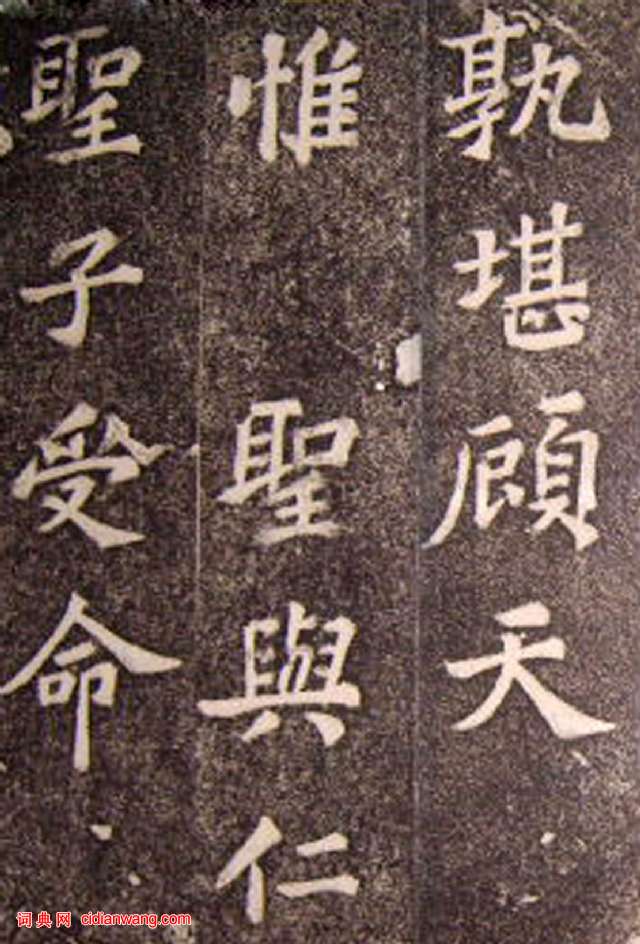 孰堪顾天
惟聖與仁
聖子受命
词典网 cidianwang.com